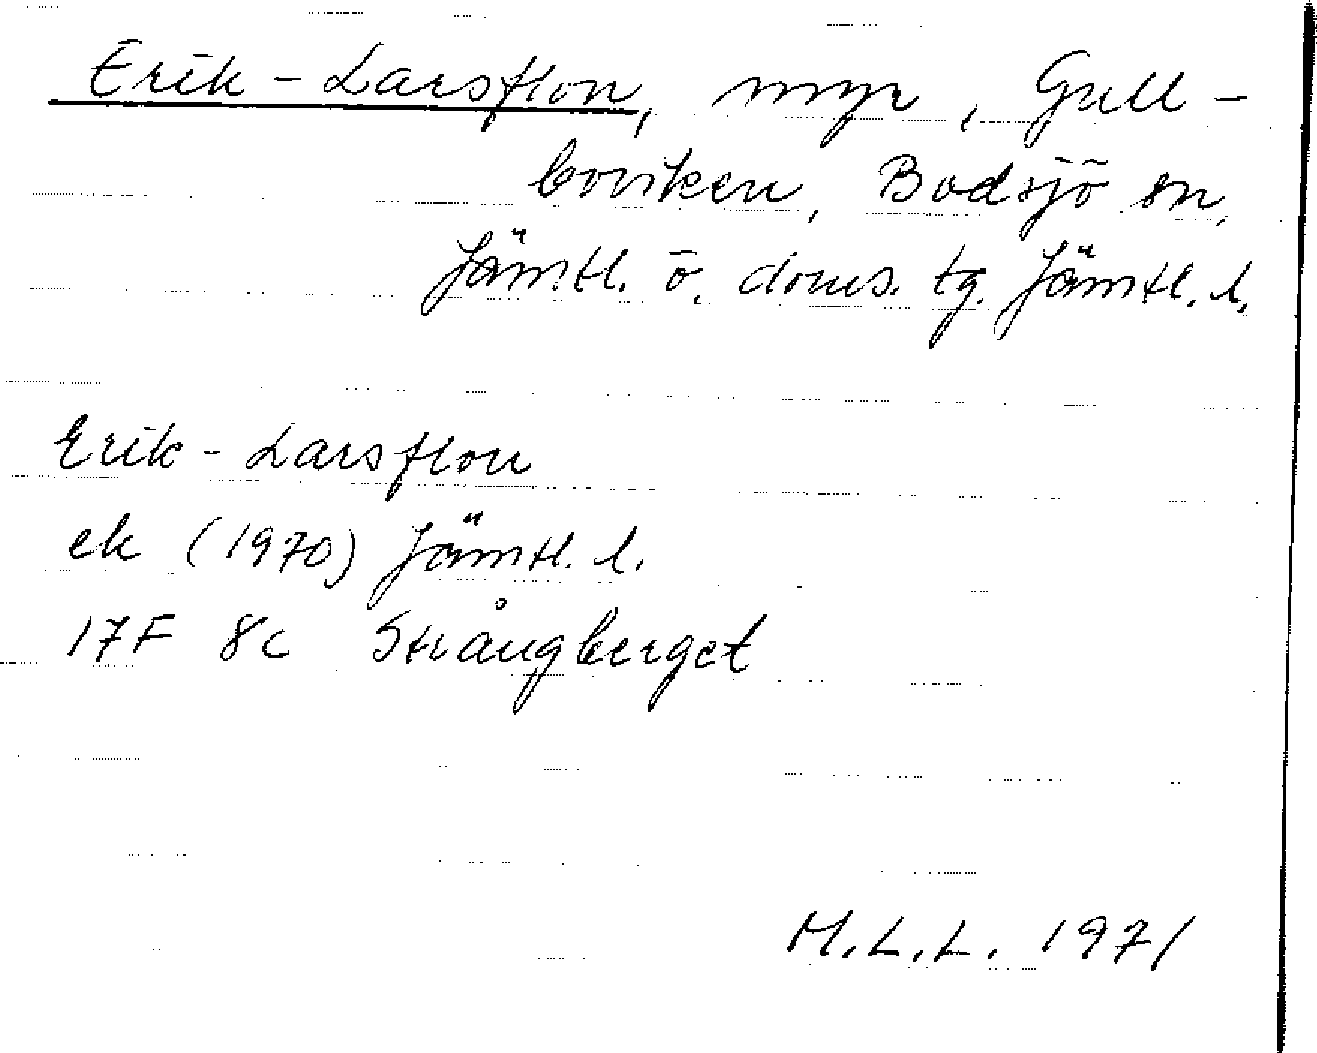 Erik-Larsflon, myr, Gull-
boviken, Bodsjö sn,
Jämtl. ö. doms. tg. Jämtl. l.
Erik-Larsflon
ek (1970) Jämtl. l.
17F 8c Strångberget
M.L.L. 1971